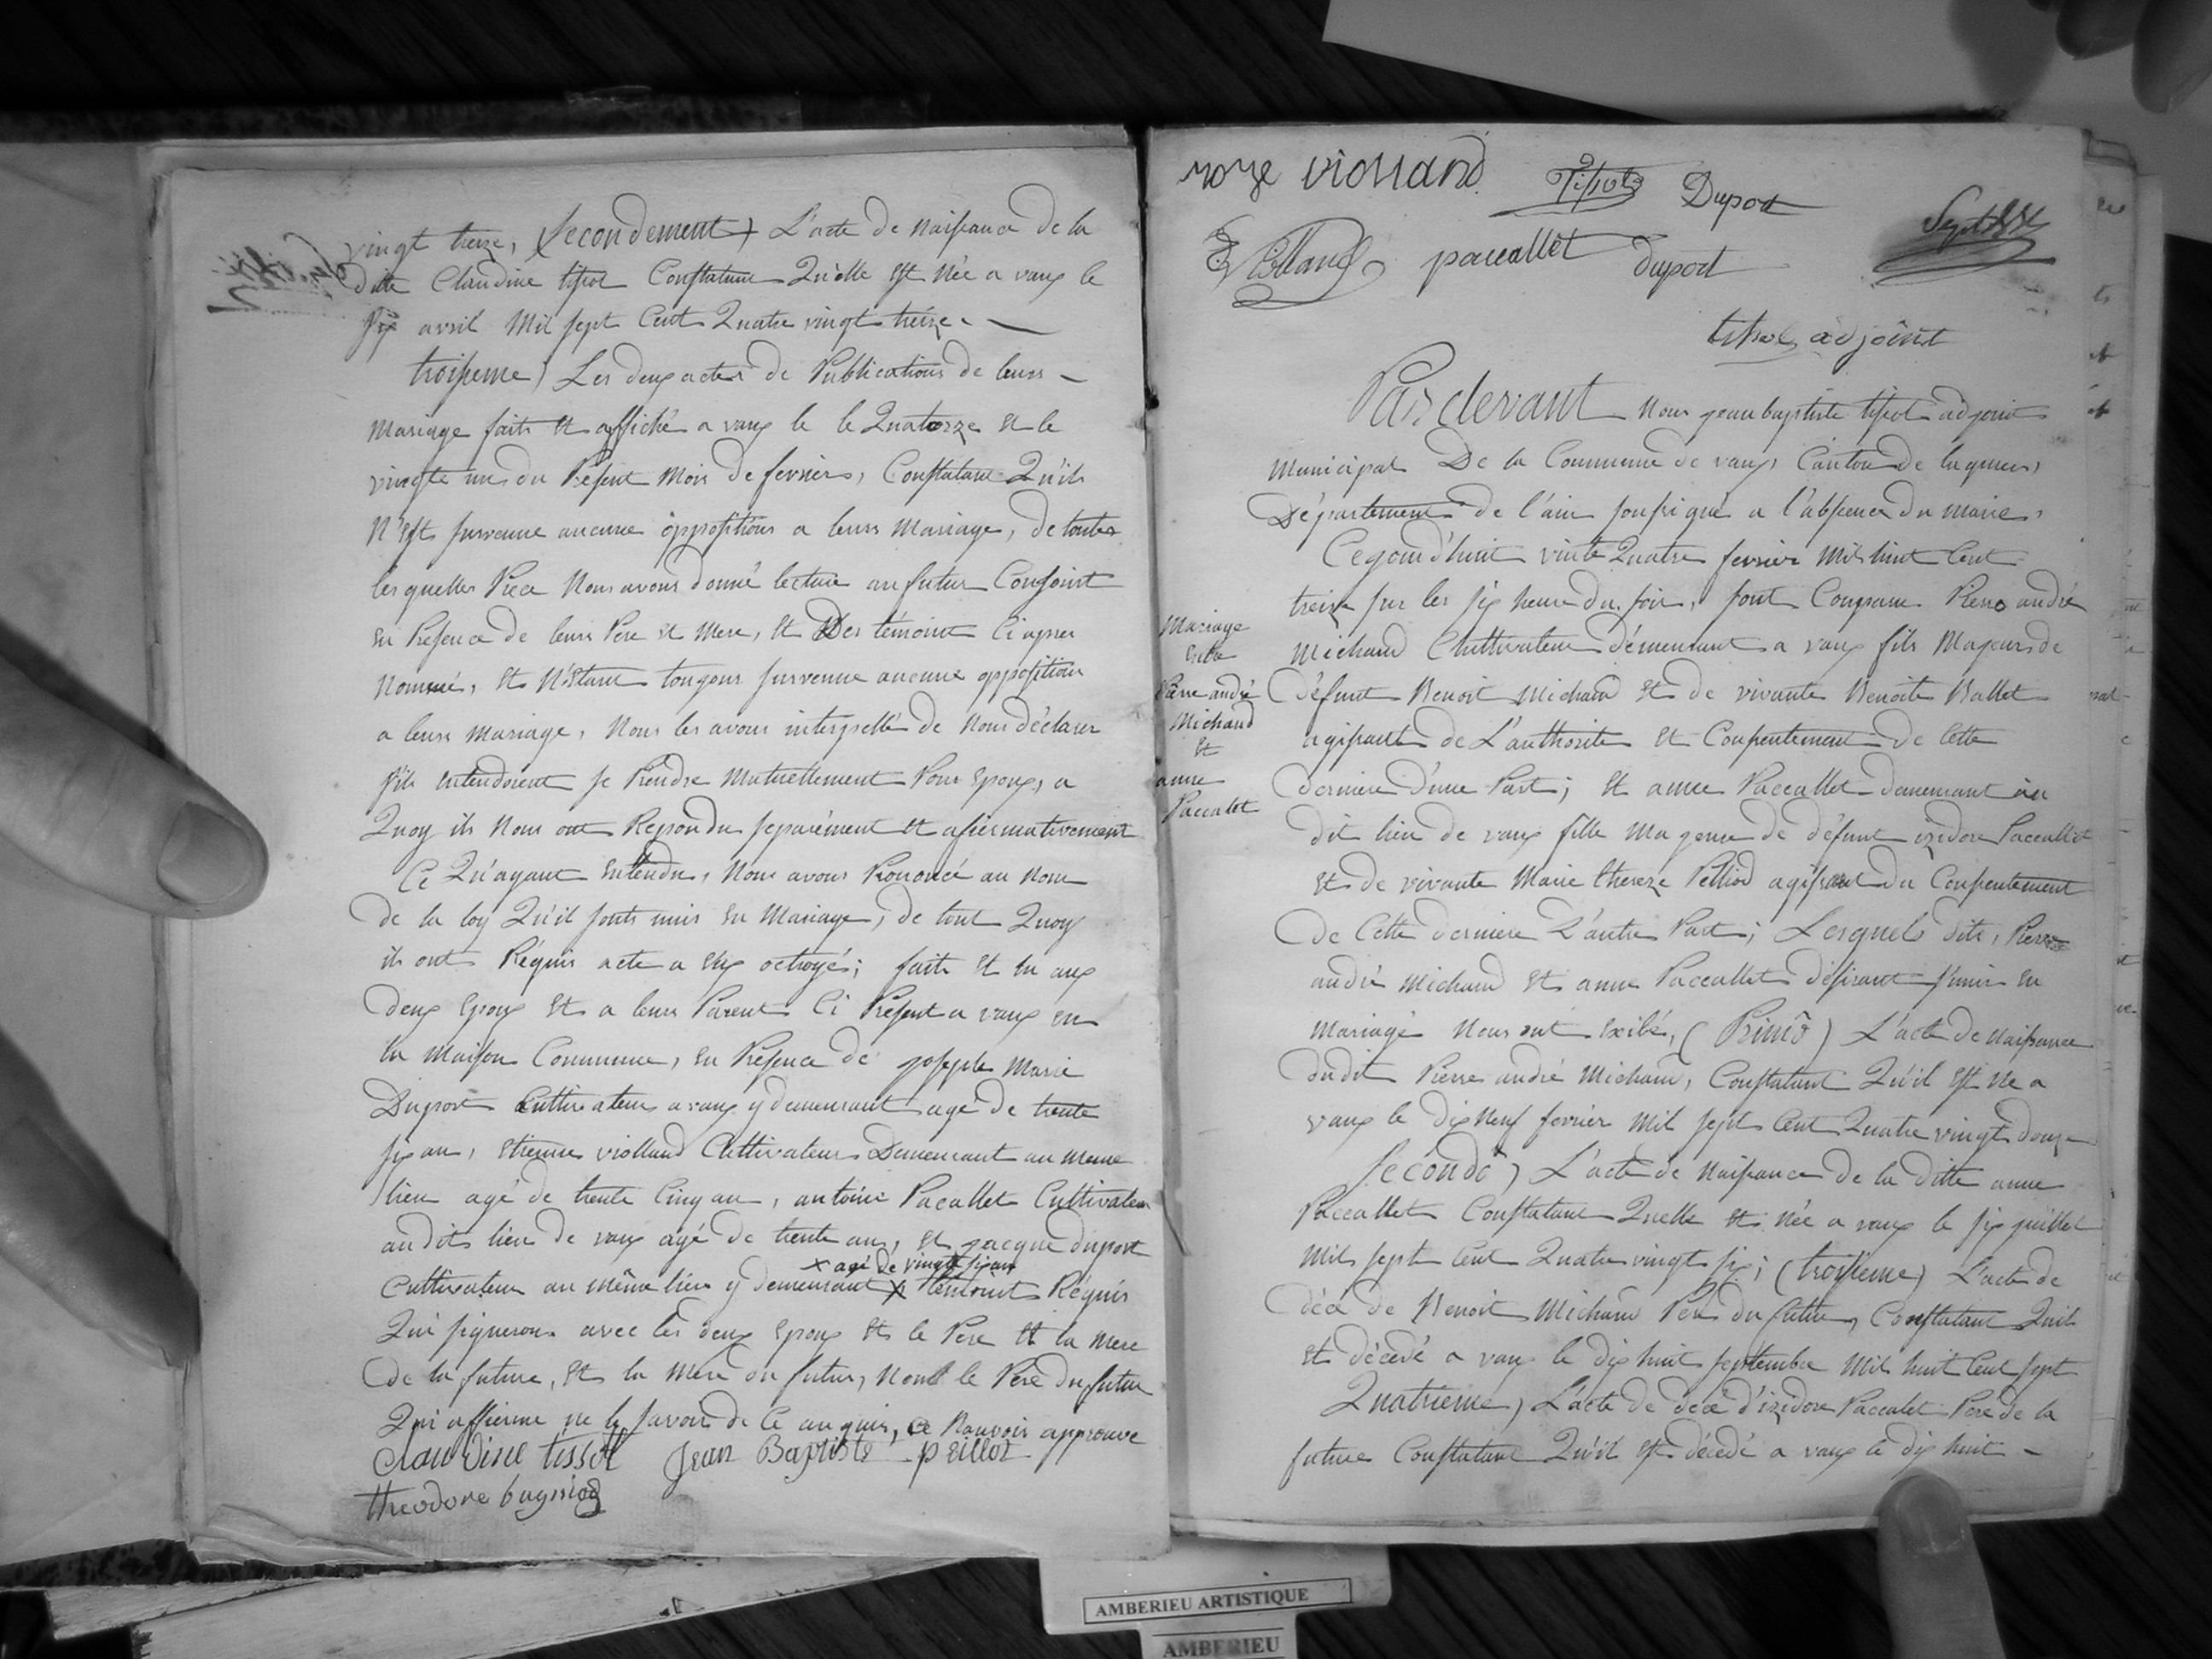 vingt treize, Secondement) L'acte de Naissance de la
ditte Claudine tissot Constatant Qu'elle est Née a vaux le
six avril Mil sept Cent Quatre vingt treize.
troisieme) Les deux actes de Publications de leurs
Mariage faits et affiché a vaux le le Quatorze et le
vingte un du Présent Mois de fevrier, Constatant Qu'ils
N'est survenue aucune oppositions a leurs Mariage, de toutes
lesquelles Piece Nous avons donné lecture au futur Conjoint
en Présence de leurs Pere et Mere, et Des témoint Ci apres
Nommé, et N'étant toujours survenue aucune opposition
a leurs Mariage, Nous les avons interpellé de Nous déclarer
s'ils entendoient se Prendre Mutuellement Pour Epoux, a
Quoy ils Nous ont Repondu separément et afirmativement
Ce Qu'ayant Entendu, Nous avons Prononcé au Nom
de la loy Qu'il sonts unis en Mariage, de tout Quoy
ils onts Réquis acte a eux octroyé; faits et lu aux
deux Epoux et a leurs Parent Ci Présent a vaux en
la Maison Commune, en Présence de joseph Marie
Duport Cultivateur a vaux y demeurant agé de trente
six an, etienne violland Cultivateur Demeurant au meme
lieu agé de trente Cinq an, antoine Pacallet Cultivateur
audits lieu de vaux agé de trente ans, et jacque duport
x agé de vingt six ans
Cultivateur au même lieu y demeurant x témoint Réquis
Qui signerons avec les deux Epoux et le Pere et la Mere
de la future, et la Mere du futur, Non le Pere du futur
Qui affirme ne le savoir de Ce an quis, Ce Nauvois approuve
Claudine tissot Jean Baptiste peillot
theodore bugniod
roze violland Tissot Duport
E Violland paccallet duport
tissot adjoint
Par devant Nous jean baptiste tissot adjoint
Municipal De la Commune de vaux Canton de lagnieu,
Département de l'ain soussigné a l'absence du maire,
Cejourd'huit vinte Quatre fevrier Mil huit Cent
treize sur les six heure du soir, sont Comparu Pierre andré
Michaud Cultivateur démeurant a vaux fils Majeur de
Mariage
entre
Pierre andré
Michaud
et
anne
Paccalet
défunt Benoit Michaud et de vivante Benoite Ballet
agissant de L'authorité et Consentement de Cette
derniere d'une Part; et anne Paccallet demeurant au
dit lieu de vaux fille Majeure de défunt izidore Paccallet
et de vivante Marie thereze Pelliod agissant du Consentement
de Cette derniere D'autre Part; Lesquels dits, Pierre
andré Michaud et anne Paccallet désirant s'unir en
Mariage Nous ont exibé, (Primo) L'acte de Naissance
dudit Pierre andré Michaud, Constatant Qu'il est Né a
vaux le dix Neuf fevrier Mil sept Cent Quatre vingt douze
Secondo) L'acte de Naissance de la ditte anne
Paccallet Constatant Quelle est née a vaux le six juillet
Mil sept Cent Quatre vingt six; (troisieme) L'acte de
décé de Benoit Michaud Pere du futur, Constatant Quil
est décédé a vaux le dix huit septembre Mil huit Cent sept
Quatrieme) L'acte de décé d'izidore Paccalet Pere de la
future Constatant Qu'il est décédé a vaux le dix huit
AMBERIEU ARTISTIQUE
AMBERIEU